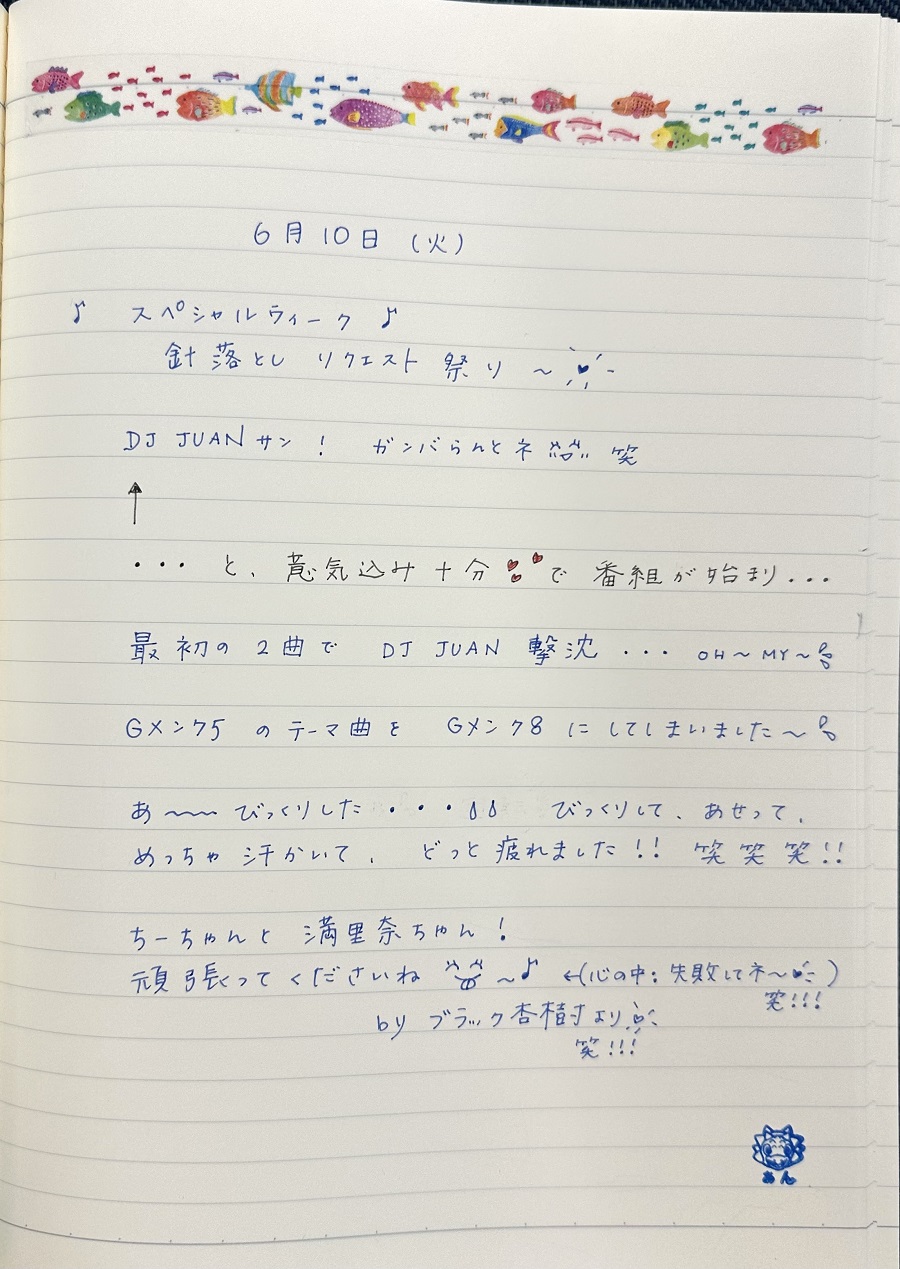 6月10日（火）
♪ スペシャルウィーク ♪
針落とし リクエスト 祭り ～
DJ JUANサン！ ガンバらんとネ 笑
↑
・・・ と、意気込み十分で 番組が始まり...
最初の2曲で DJ JUAN 撃沈 ・・・ OH～MY～
Gメン75 のテーマ曲を Gメン78 にしてしまいました～
あ～～ びっくりした ・・・ びっくりして、あせって、
めっちゃ 汗かいて、 どっと疲れました！！ 笑 笑 笑！！
ちーちゃんと 満里奈ちゃん！
頑張ってくださいね ～♪ ←(心の中：失敗してネ～)
笑！！！
by ブラック杏樹より
笑！！！
あん